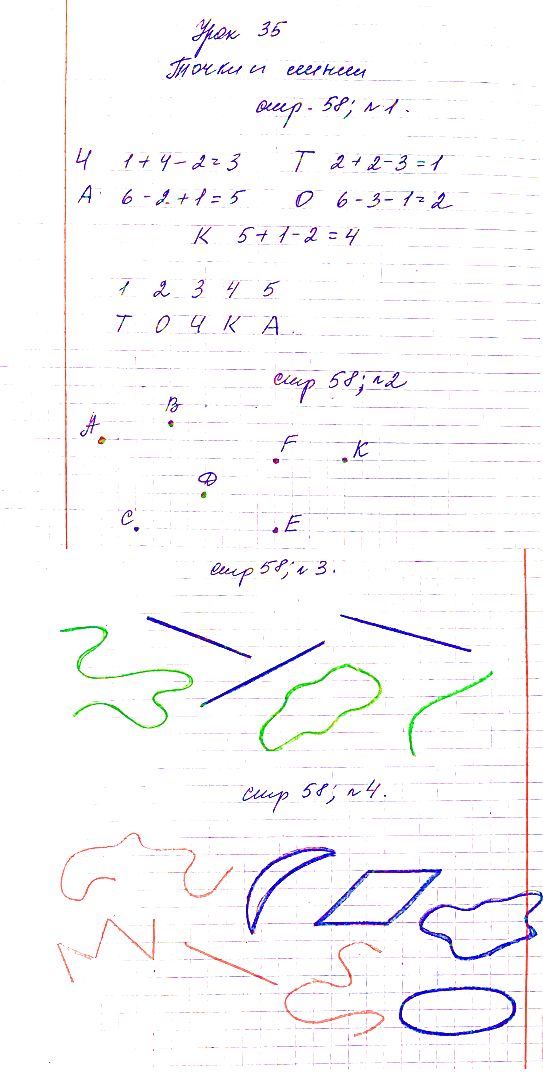 Урок 35
Точки и линии
стр. 58; №1.
Ч 1+4-2=3 Т 2+2-3=1
А 6-2+1=5 О 6-3-1=2
К 5+1-2=4
1 2 3 4 5
Т О Ч К А.
стр 58; №2
В
А
F К
D
С Е
стр 58; №3.
стр 58; №4.